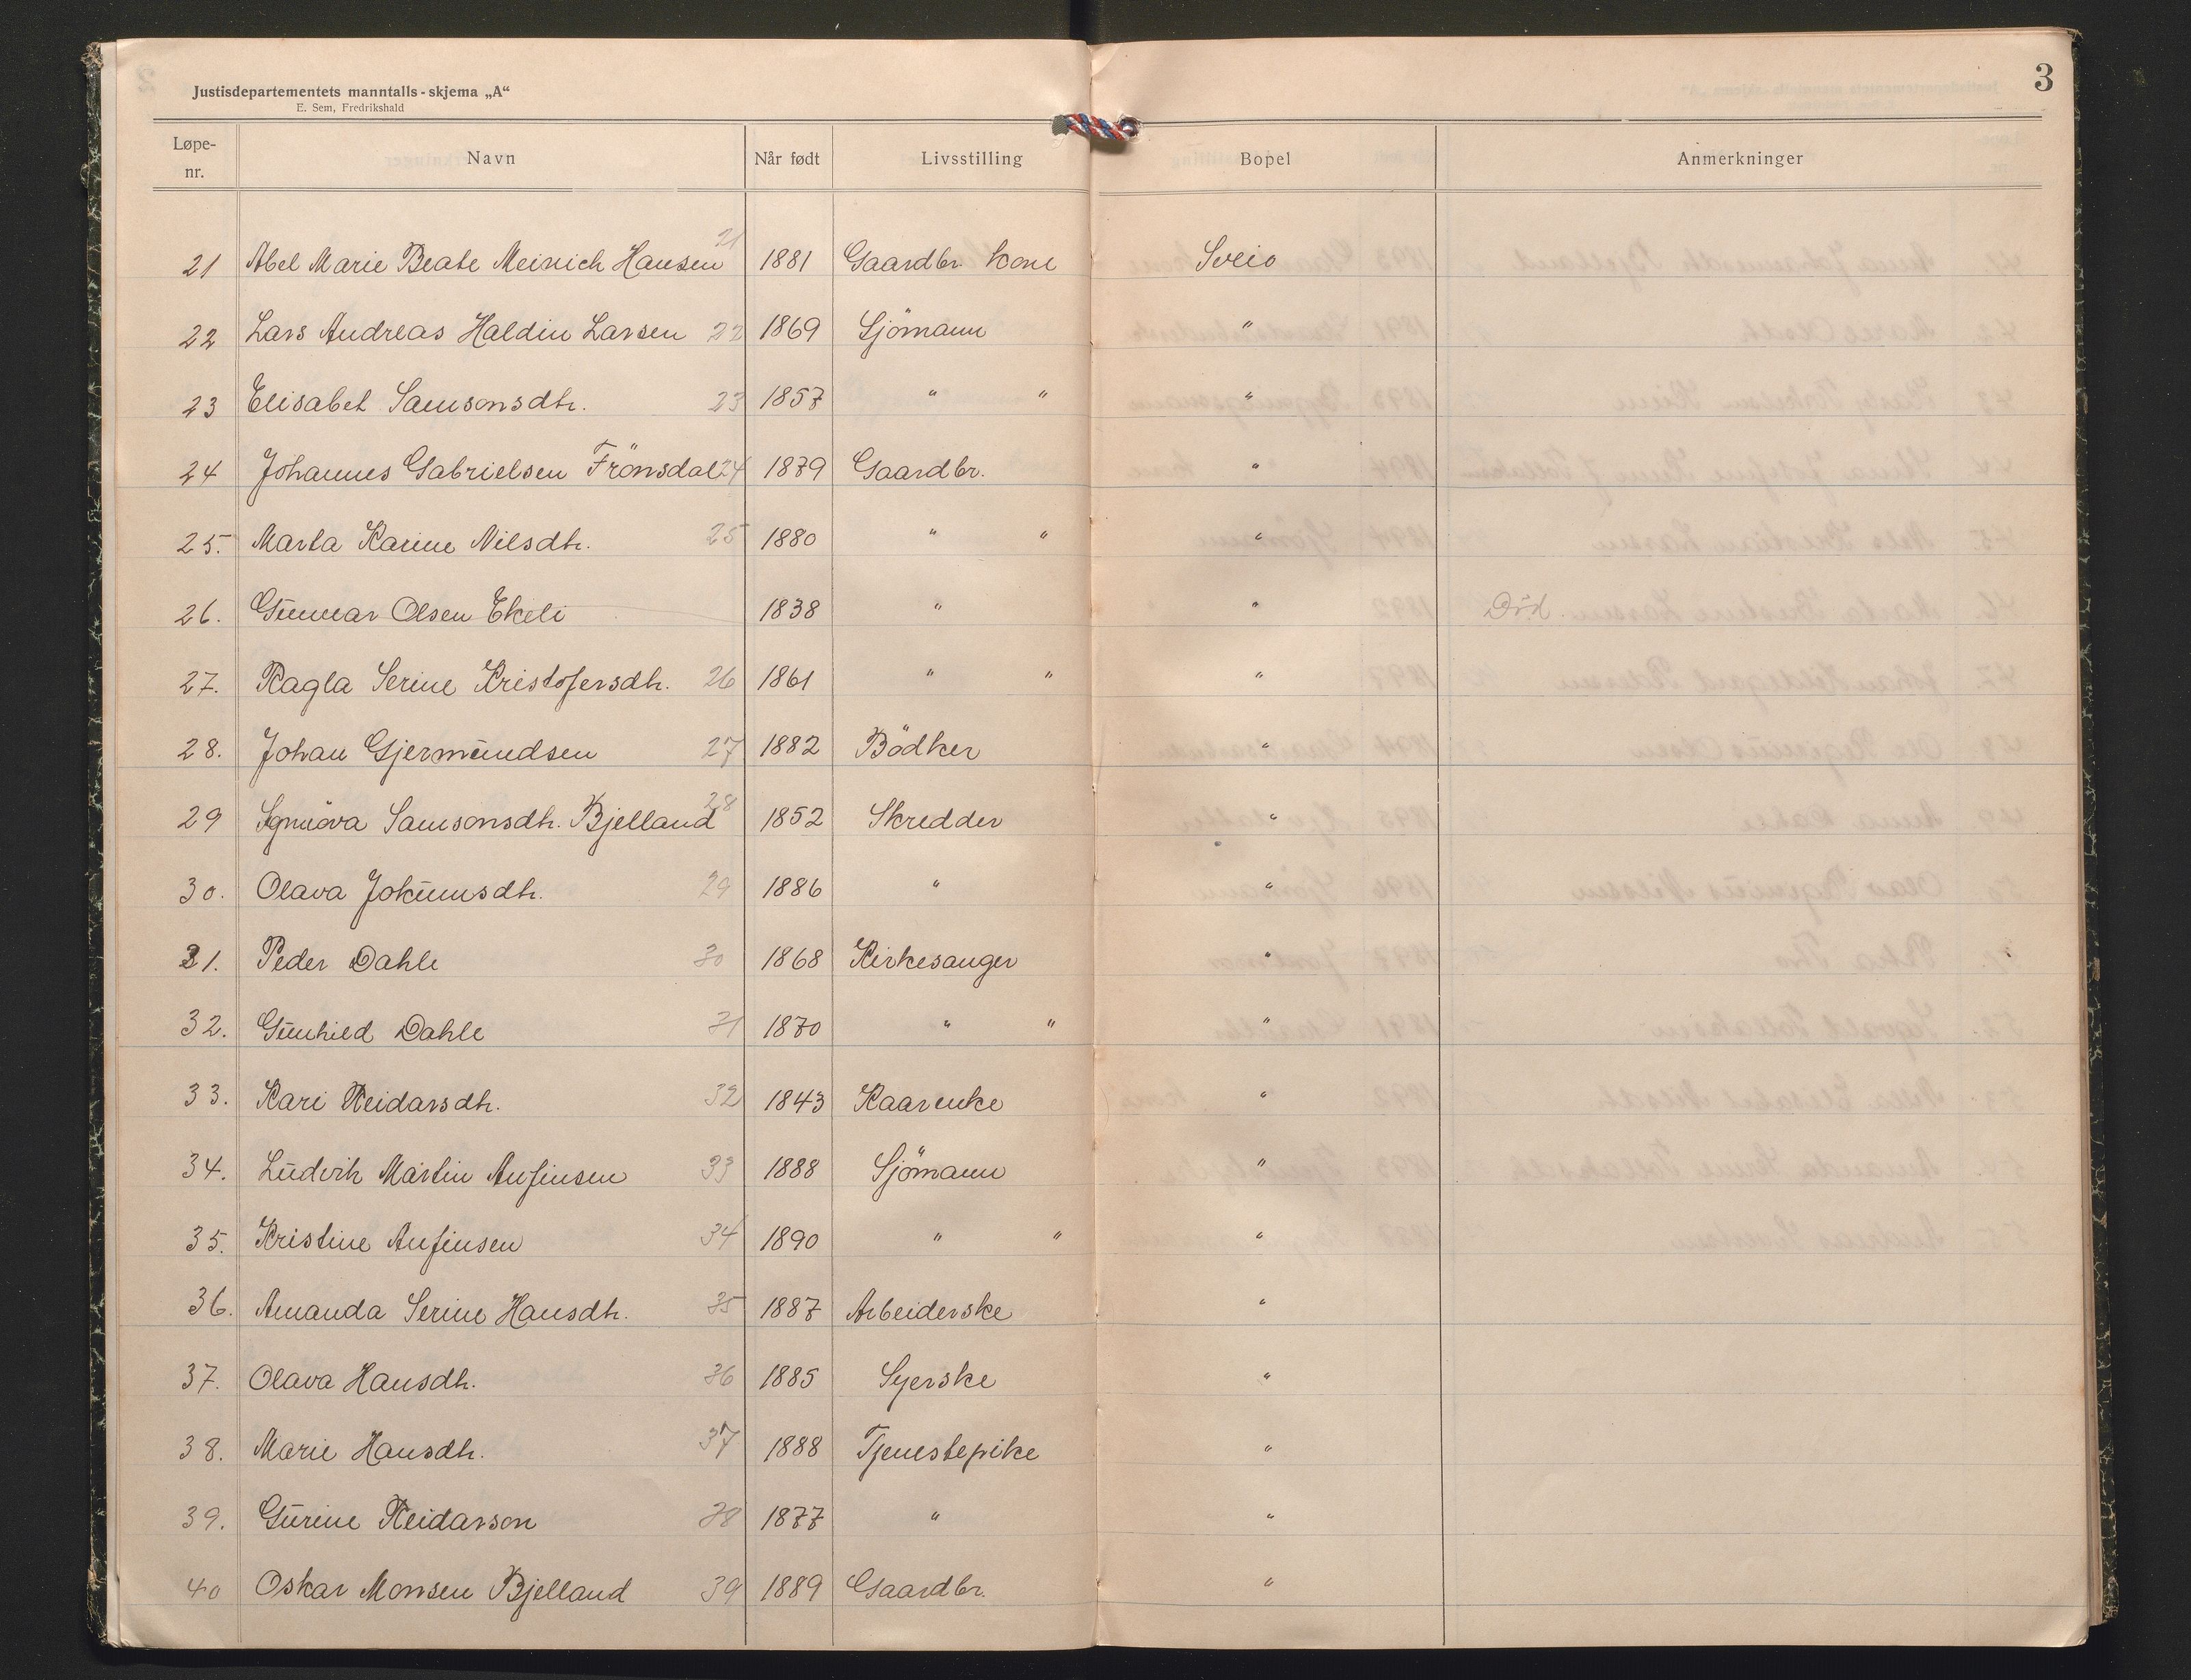 3
Justisdepartementets manntalls-skjema „A“
E. Sem, Fredrikshald
Løpe-nr. Navn Når født Livsstilling Bopel Anmerkninger
21 Abel Marie Beate Meinich Hansen 21 1881 Gaardbr. kone Sveio
22 Lars Andreas Haldin Larsen 22 1869 Sjömann "
23 Elisabet Samsonsdtr. 23 1857 " " "
24 Johannes Gabrielsen Frönsdal 24 1879 Gaardbr. "
25. Marta Karine Nilsdtr. 25 1880 " " "
26. Gunnar Olsen Ekeli 1838 " " Död.
27. Ragla Serine Kristofersdtr. 26 1861 " " "
28. Johan Gjermundsen 27 1882 Bödker "
29 Samsonsdtr. Bjelland 28 1852 Skredder "
30. Olava Jokumsdtr. 29 1886 " "
31. Peder Dahle 30 1868 Kirkesanger "
32. Gunhild Dahle 31 1870 " " "
33. Kari Reidarsdtr. 32 1843 Kaarenke "
34. Ludvik Martin Anfinsen 33 1888 Sjömann "
35. Kristine Anfinsen 34 1890 " " "
36. Amanda Serine Hansdtr. 35 1887 Arbeiderske "
37. Olava Hansdtr. 36 1885 Syerske "
38. Marie Hansdtr. 37 1888 Tjenestepike "
39. Gurine Reidarson 38 1877 " "
40 Oskar Monsen Bjelland 39 1889 Gaardbr. "